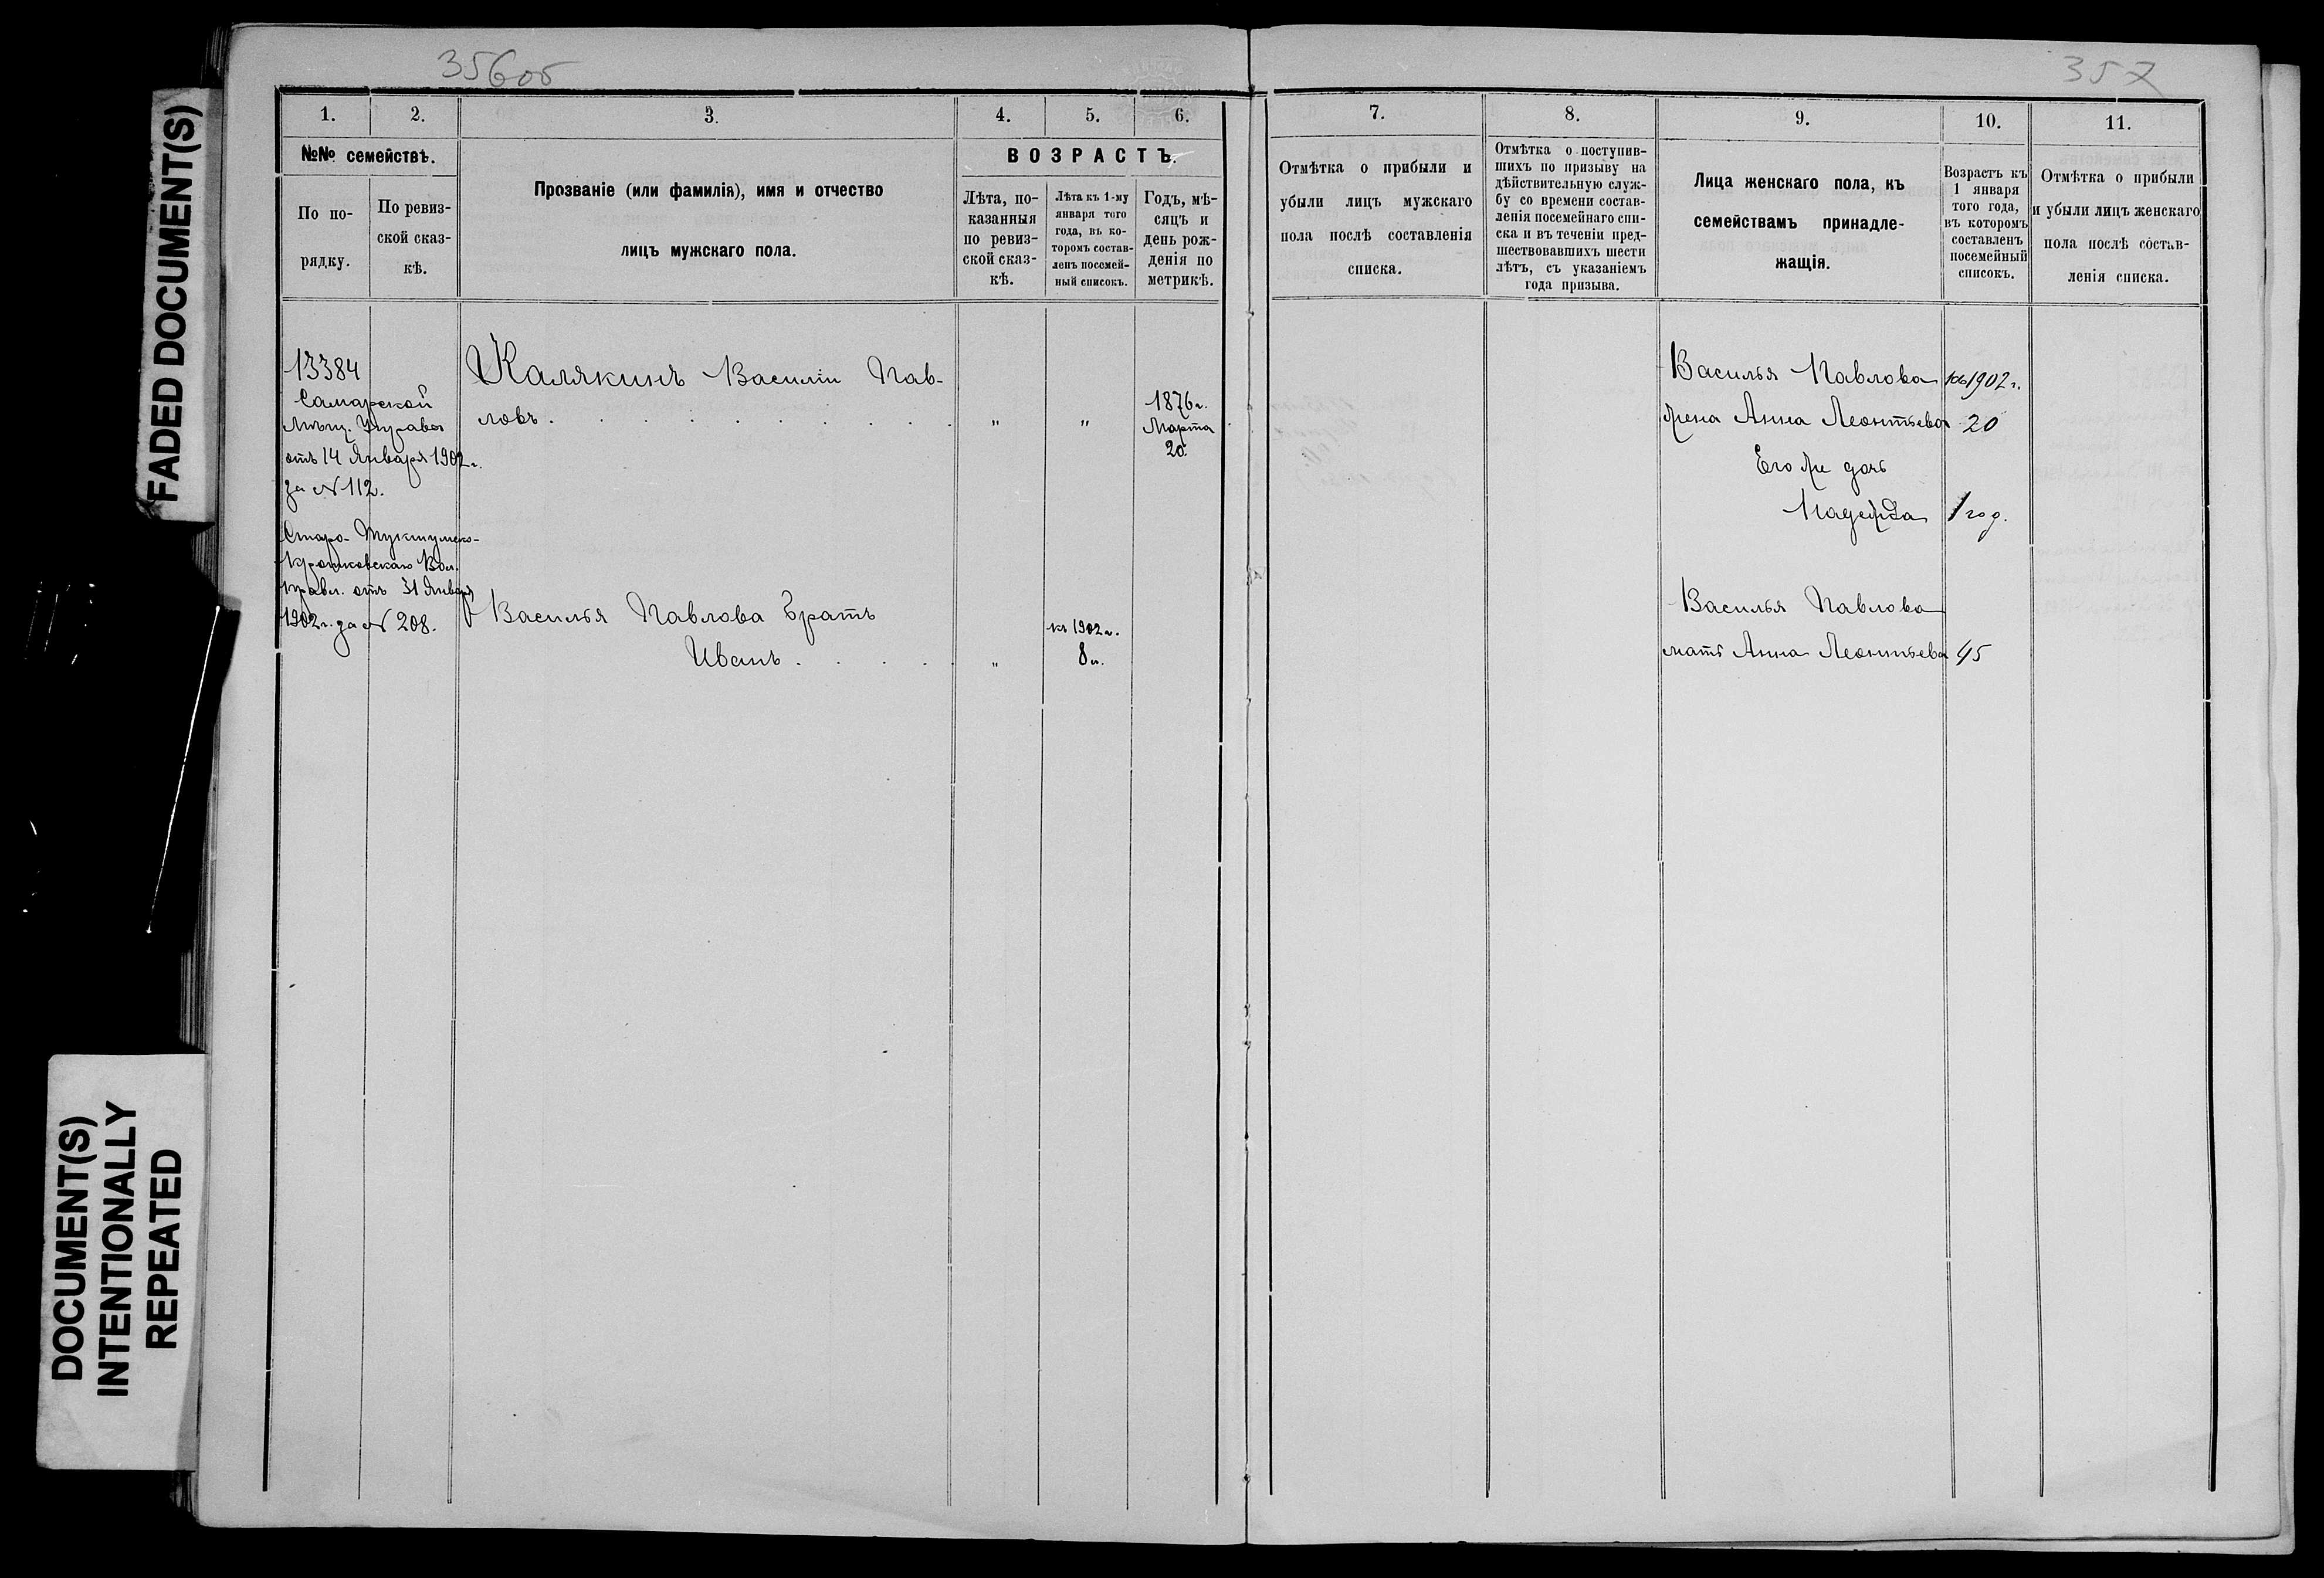 FADED DOCUMENT(S)
DOCUMENT(S)
INTENTIONALLY
REPEATED
356об
357
1.
2.
3.
4.
5.
6.
№№ семействъ.
По по-
рядку.
По ревиз-
ской сказ-
кѣ.
Прозваніе (или фамилія), имя и отчество
лицъ мужскаго пола.
ВОЗРАСТЪ.
Лѣта, по-
казанныя
по ревиз-
ской сказ-
кѣ.
Лѣта къ 1-му
января того
года, въ ко-
торомъ состав-
ленъ посемей-
ный списокъ.
Годъ, мѣ-
сяцъ и
день рож-
денія по
метрикѣ.
7.
8.
9.
10.
11.
Отмѣтка о прибыли и
убыли лицъ мужскаго
пола послѣ составленія
списка.
Отмѣтка о поступив-
шихъ по призыву на
дѣйствительную служ-
бу со времени состав-
ленія посемейнаго спи-
ска и въ теченіи пред-
шествовавшихъ шести
лѣтъ, съ указаніемъ
года призыва.
Лица женскаго пола, къ
семействамъ принадле-
жащія.
Возрастъ къ
1 января
того года,
въ которомъ
составленъ
посемейный
списокъ.
Отмѣтка о прибыли
и убыли лицъ женскаго
пола послѣ состав-
ленія списка.
13384
Самарской
Мѣщ. Управы
отъ 14 Января 1902 г.
за № 112.
Старо-
Вол.
правл. отъ 31 Января
1902 г. за № 208.
Калякинъ Василій Пав-
ловъ . . . . . . . . . . „ „
1876 г.
Марта
20.
Василья Павлова братъ
Иванъ . . . . „
къ 1902 г.
8 л.
Василья Павлова къ 1902 г.
жена Анна Леонтьева 20
Его же дочь
Надежда 1 год.
Василья Павлова
мать Анна Леонтьева 45